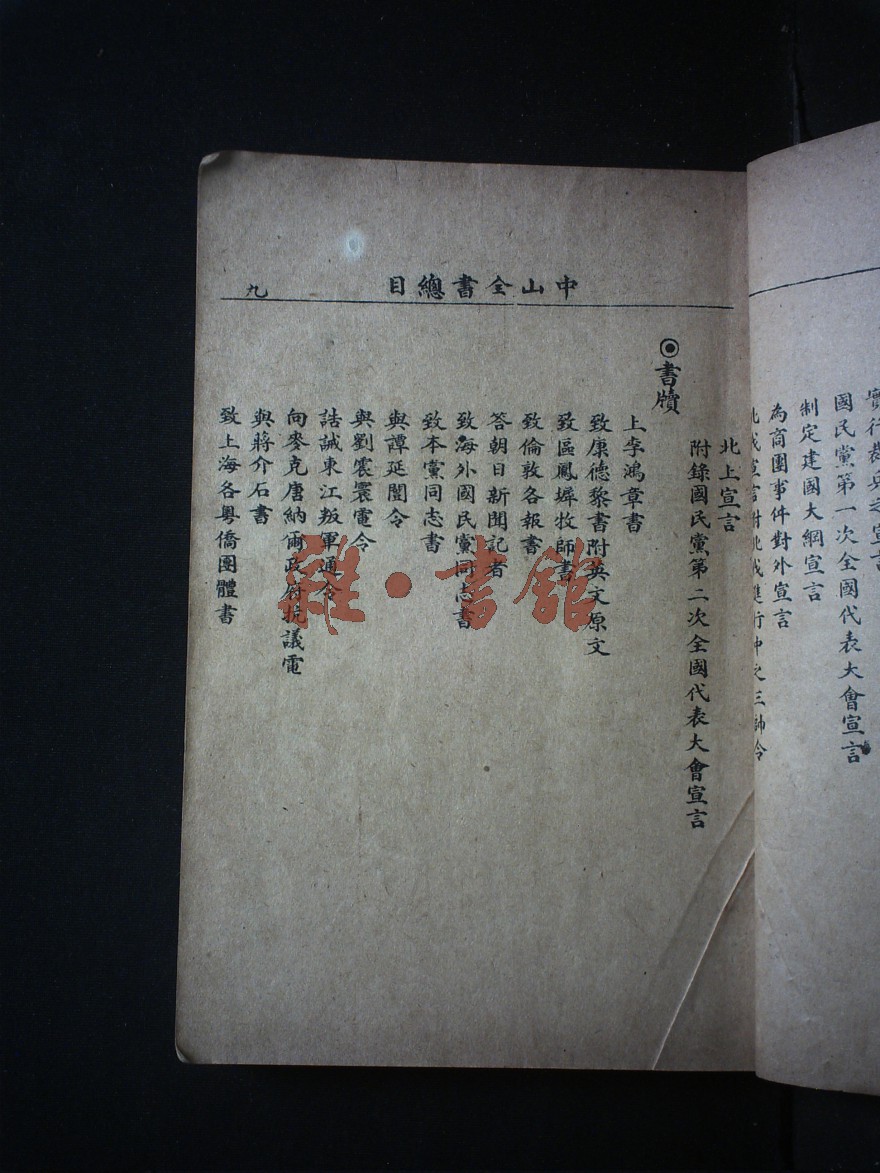 實行裁兵之宣言
國民黨第一次全國代表大會宣言
制定建國大綱宣言
為商團事件對外宣言
北伐宣言附北伐進行中之三帥令
中山全書總目
九
北上宣言
附錄國民黨第二次全國代表大會宣言
◉書牘
上李鴻章書
致康德黎書附英文原文
致區鳳墀牧師書
致倫敦各報書
答朝日新聞記者
致海外國民黨同志書
致本黨同志書
與譚延闓令
與劉震寰電令
誥誡東江叛軍通令
向麥克唐納爾政府抗議電
與蔣介石書
致上海各粵僑團體書
雜·書館